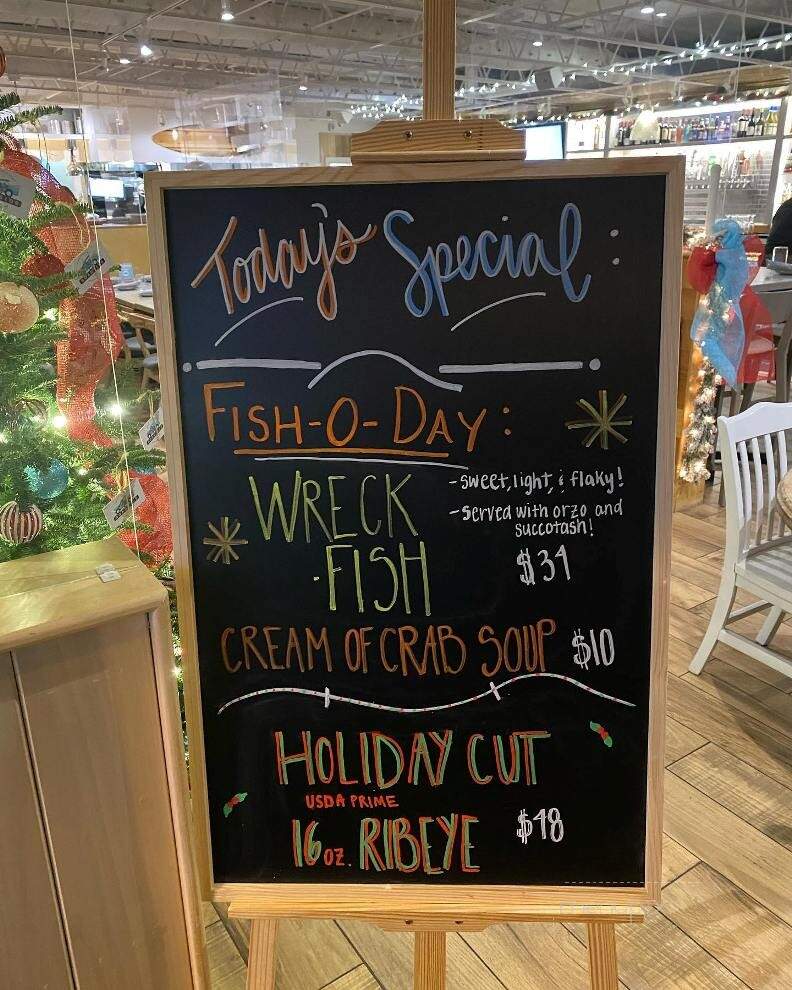 Today's Special:
FISH-O-DAY:
WRECK
-FISH
-sweet, light, & flaky!
-served with orzo and
succotash!
$31
CREAM OF CRAB SOUP $10
HOLIDAY CUT
USDA PRIME
16 oz. RIBEYE $48